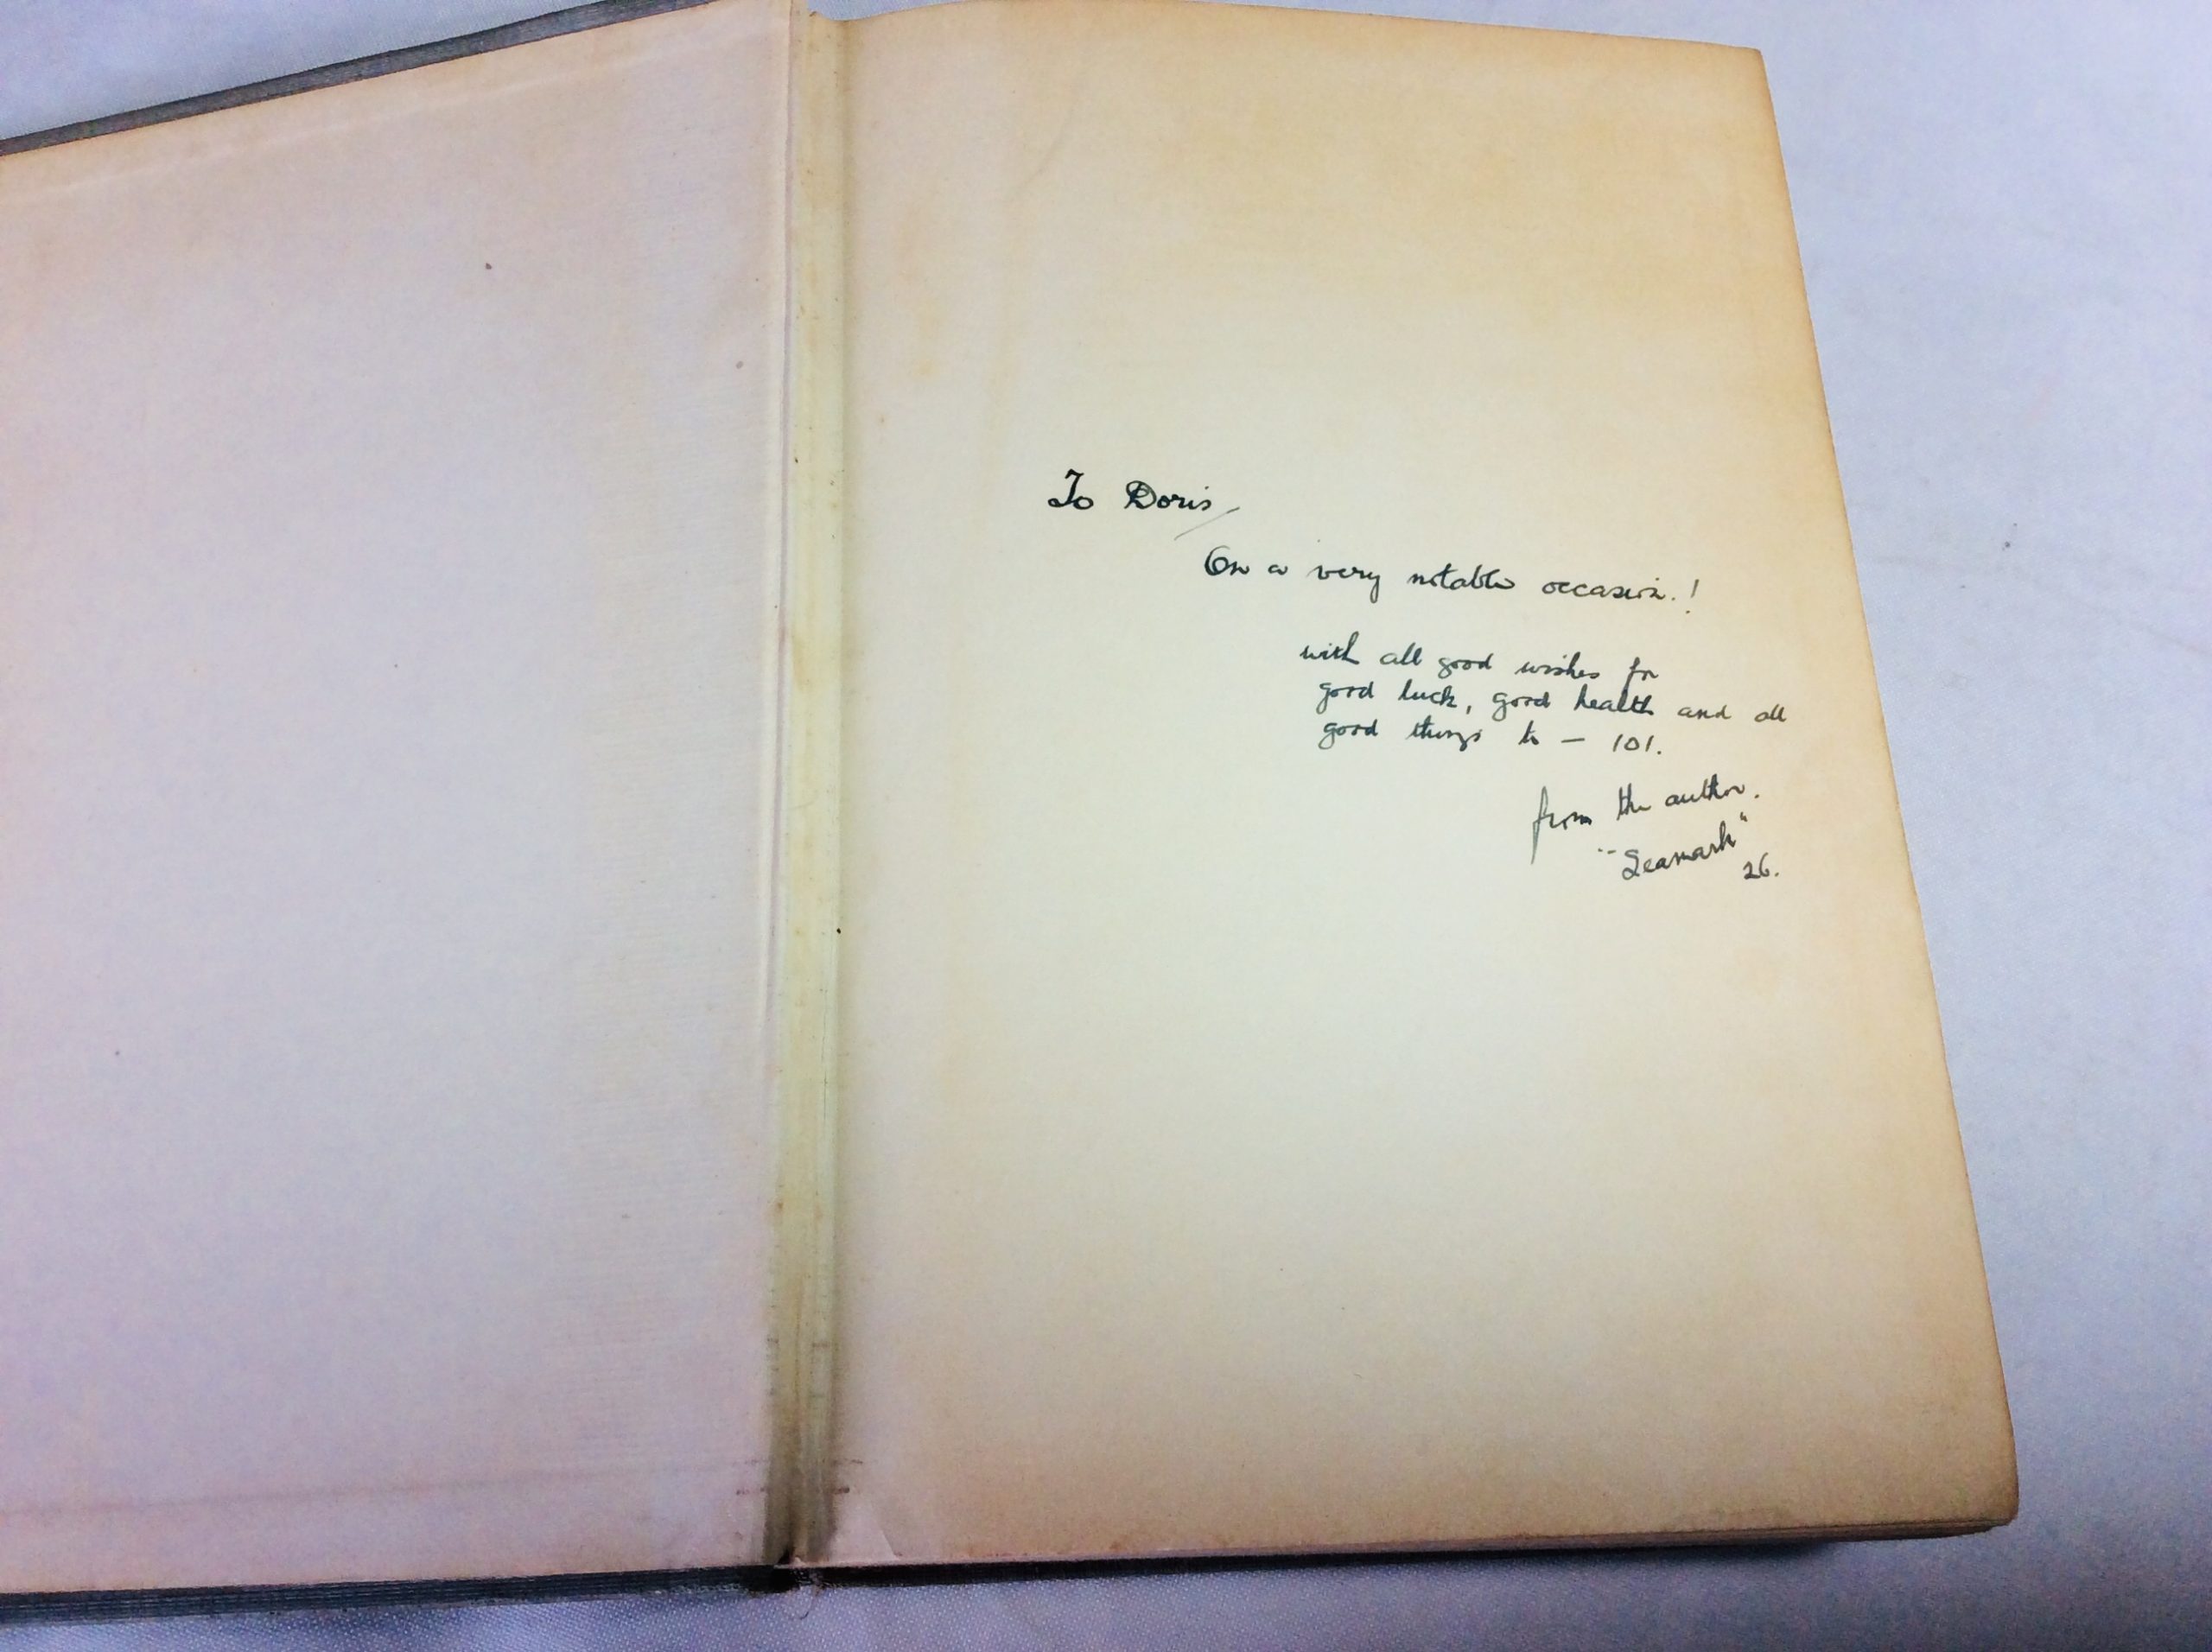 To Doris,
On a very notable occasion.!
with all good wishes for
good luck, good health and all
good things to — 101.
from the author.
"Seamark"
26.